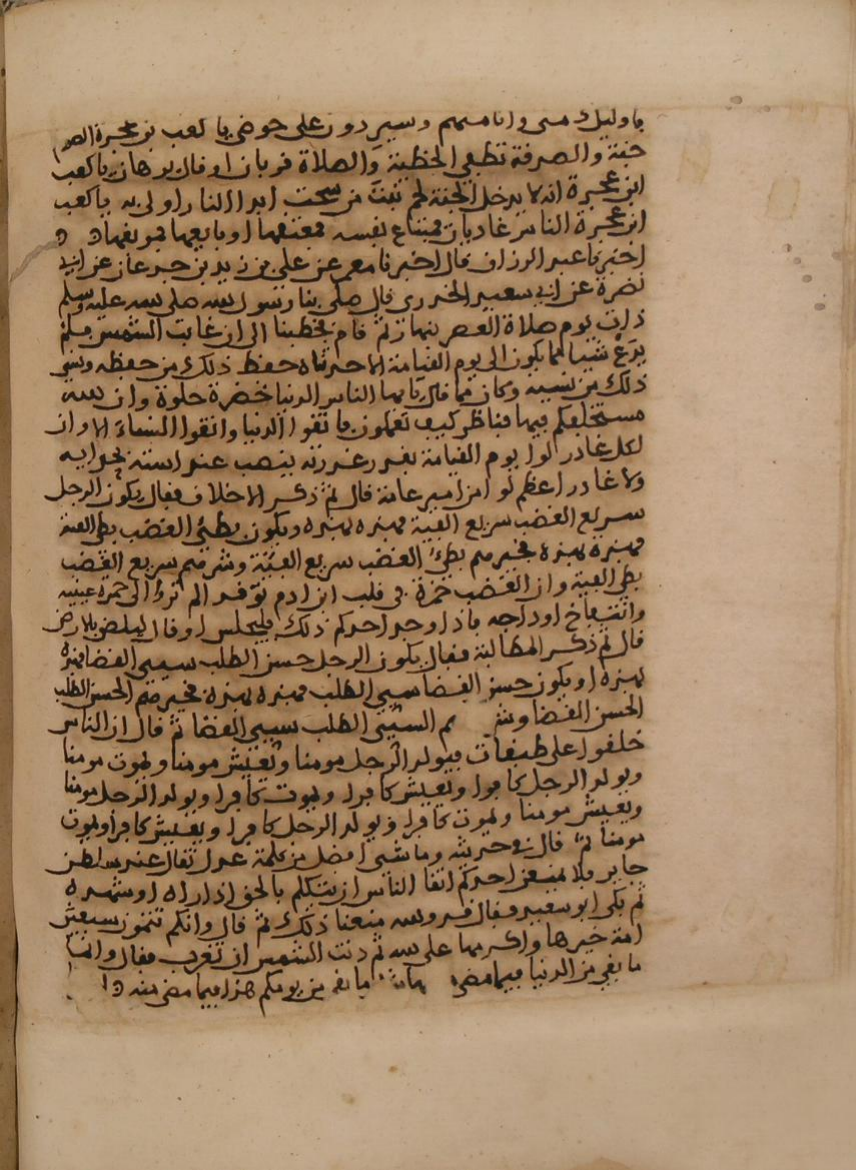 فاوليك مني وانا منهم وسيردون على حوضي يا كعب بن عجرة الصوم
جنة والصدقة تطفي الخطية والصلاة قربان او قال برهان يا كعب
ابن عجرة انه لا يدخل الجنة لحم نبت من سحت ابدا النار اولى به يا كعب
ابن عجرة الناس غاديان فمبتاع نفسه فمعتقها او بايعها فموبقها
اخبرنا عبد الرزاق قال اخبرنا معمر عن علي بن زيد بن جدعان عن ابي
نضرة عن ابي سعيد الخدري قال صلى بنا رسول الله صلى الله عليه وسلم
ذات يوم صلاة العصر بنهار ثم قام يخطبنا الى ان غابت الشمس فلم
يدع شيا مما يكون الى يوم القيامة الا حدثناه حفظ ذلك من حفظه ونسي
ذلك من نسيه وكان مما قال يا ايها الناس الدنيا خضرة حلوة وان الله
مستخلفكم فيها فناظر كيف تعملون فاتقوا الدنيا واتقوا النساء الا وان
لكل غادر لوا يوم القيامة بقدر غدرته ينصب عند استه بحذايه
ولا غادر اعظم لوا من امير عامة قال ثم ذكر الاخلاق فقال يكون الرجل
سريع الغضب سريع الفية فهذه بهذه ويكون بطئ الغضب بطئ الفية
فهذه بهذه فخيرهم بطئ الغضب سريع الفيئة وشرهم سريع الغضب
بطي الفية وان الغضب جمرة في قلب ابن ادم توقد الم تروا الى حمرة عينيه
وانتفاخ اوداجه فاذا وجد احدكم ذلك فليجلس او قال ليلصق بالارض
قال ثم ذكر المطالبة فقال يكون الرجل حسن الطلب سيي القضا فهذه
بهذه او يكون حسن القضا سيي الطلب فهذه بهذه فخيرهم الحسن الطلب
الحسن القضا وشرهم السيئ الطلب سيي القضا ثم قال ان الناس
خلقوا على طبقات فيولد الرجل مومنا ويعيش مومنا ويموت مومنا
ويولد الرجل كافرا ويعيش كافرا ويموت كافرا ويولد الرجل مومنا
ويعيش مومنا ويموت كافرا ويولد الرجل كافرا ويعيش كافرا ويموت
مومنا ثم قال في حديثه وما شيي افضل من كلمة عدل تقال عند سلطان
جاير فلا يمنعن احدكم اتقا الناس ان يتكلم بالحق اذا راه او شهده
ثم بكى ابو سعيد فقال قد والله منعنا ذلك ثم قال وانكم تتمون سبعين
امة خيرها واكرمها على الله ثم دنت الشمس ان تغرب فقال وانما
ما بقي من الدنيا فيما مضى ما بقي من يومكم هذا فيما مضى منه